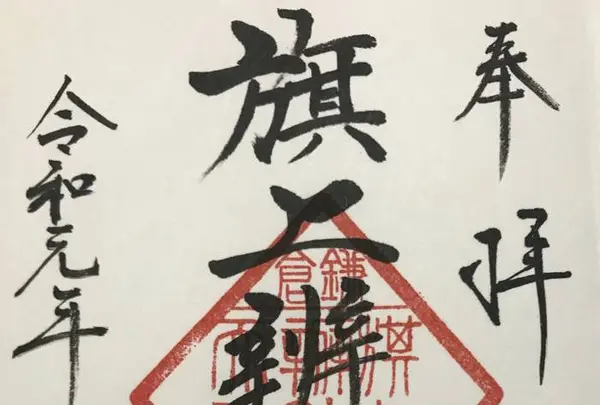 奉拝
旗上辨
令和元年
鎌倉